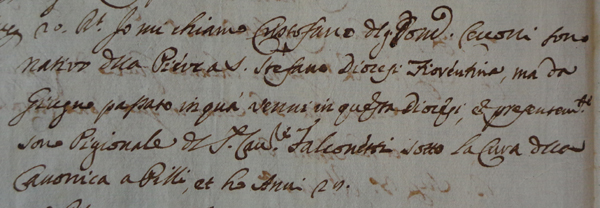 20. R. Jo mi chiamo Cristofano del q. Dom.co Cecconi sono
nativo della Pieve a S. Stefano Diocesi Fiorentina, ma da
Giugno passato in quà venni in questa Diocesi, e presentem.te
sono Pigionale del S. Cav.re Falconetti sotto la Cura della
Canonica a Pilli, et ho Anni 29.